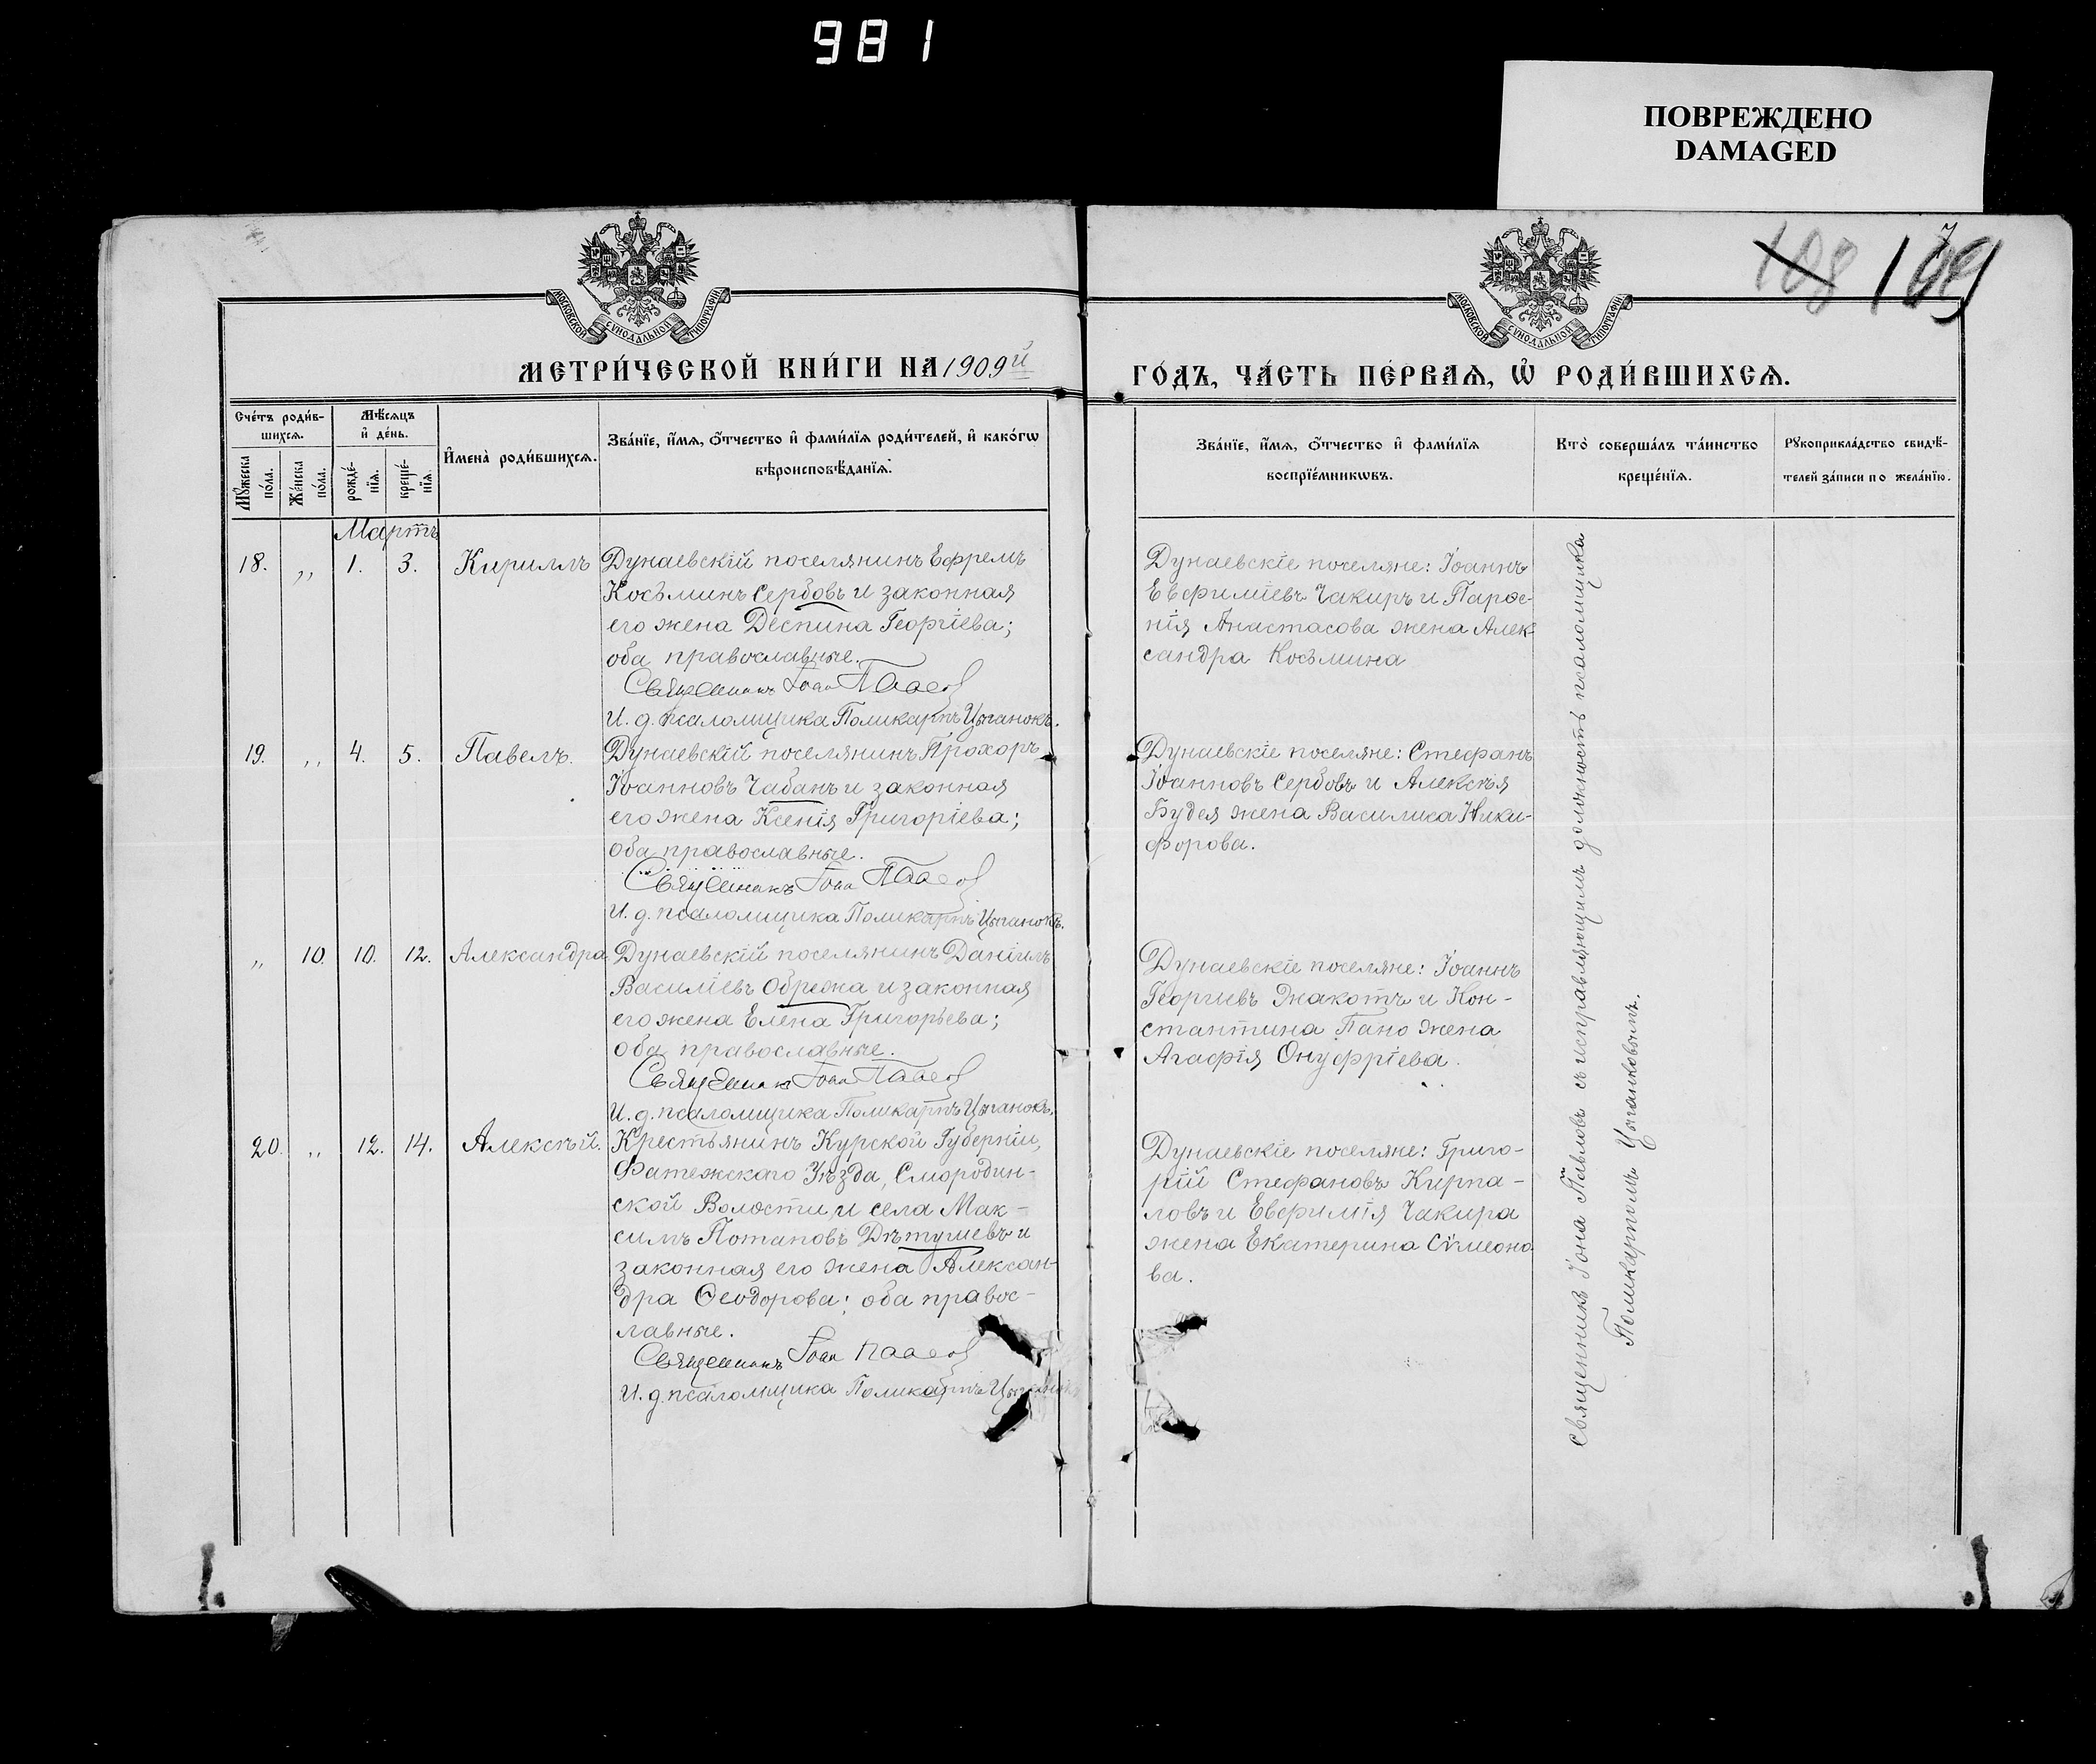 981
ПОВРЕЖДЕНО
DAMAGED
108 109
7
МОСКОВСКОЙ СУНОДАЛЬНОЙ ТИПОГРАФІИ
МОСКОВСКОЙ СУНОДАЛЬНОЙ ТИПОГРАФІИ
МЕТРИ́ЧЕСКОЙ КНИ́ГИ НА 1909й
ГО́ДЪ, ЧА́СТЬ ПЕ́РВАѦ, Ѽ РОДИ́ВШИХСѦ.
Сче́тъ роди́в-
шихсѧ.
Мѣ́сѧцъ
и҆ де́нь.
Мꙋ́жеска
по́ла.
Же́нска
по́ла.
рожде́-
нїѧ.
креще́-
нїѧ.
И҆мена̀ роди́вшихсѧ.
Зва́нїе, и҆́мѧ, ѻ҆́тчество и҆ фами́лїѧ роди́телей, и҆ како́гѡ
вѣроисповѣ́данїѧ.
Зва́нїе, и҆́мѧ, ѻ҆́тчество и҆ фами́лїѧ
воспрїе́мникѡвъ.
Кто̀ соверша́лъ та́инство
креще́нїѧ.
Рꙋкоприкла́дство свидѣ́-
телей за́писи по жела́нїю.
Мартъ
18. ,, 1. 3. Кириллъ
Дунаевскій поселянинъ Ефремъ
Косьминъ Сербовъ и законная
его жена Деспина Георгіева;
оба православные.
Священникъ Іона Павлов
И. д. псаломщика Поликарпъ Цыганокъ.
Дунаевскіе поселяне: Іоаннъ
Евфиміевъ Чакиръ и Парас-
нія Анастасова жена Алек-
сандра Косьмина
19. ,, 4. 5. Павелъ.
Дунаевскій поселянинъ Прохоръ
Іоанновъ Чабанъ и законная
его жена Ксенія Григоріева;
оба православные.
Священникъ Іона Павлов
И. д. псаломщика Поликарпъ Цыганокъ.
Дунаевскіе поселяне: Стефанъ
Іоанновъ Сербовъ и Алексѣя
Будея жена Василиса Ники-
форова.
,, 10. 10. 12. Александра
Дунаевскій поселянинъ Даніилъ
Василіевъ Обрежа и законная
его жена Елена Григорьева;
оба православные.
Священникъ Іона Павлов
И. д. псаломщика Поликарпъ Цыганокъ.
Дунаевскіе поселяне: Іоаннъ
Георгиевъ Жакотъ и Кон-
стантина Пано жена
Агафія Онуфріева.
20. ,, 12. 14. Алексѣй.
Крестьянинъ Курской Губерніи,
Фатежскаго Уѣзда, Смородин-
ской Волости и села Мак-
симъ Потаповъ Дѣтушевъ и
законная его жена Алексан-
дра Ѳеодорова; оба правос-
лавные.
Священникъ Іона Павлов
И. д. псаломщика Поликарпъ Цыганокъ
Дунаевскіе поселяне: Григо-
рій Стефановъ Кирпа-
ловъ и Евфимія Чакира
жена Екатерина Сѵмеоно
ва.
Священникъ Іона Павловъ съ исправляющимъ должность псаломщика
Поликарпомъ Цыганковымъ.